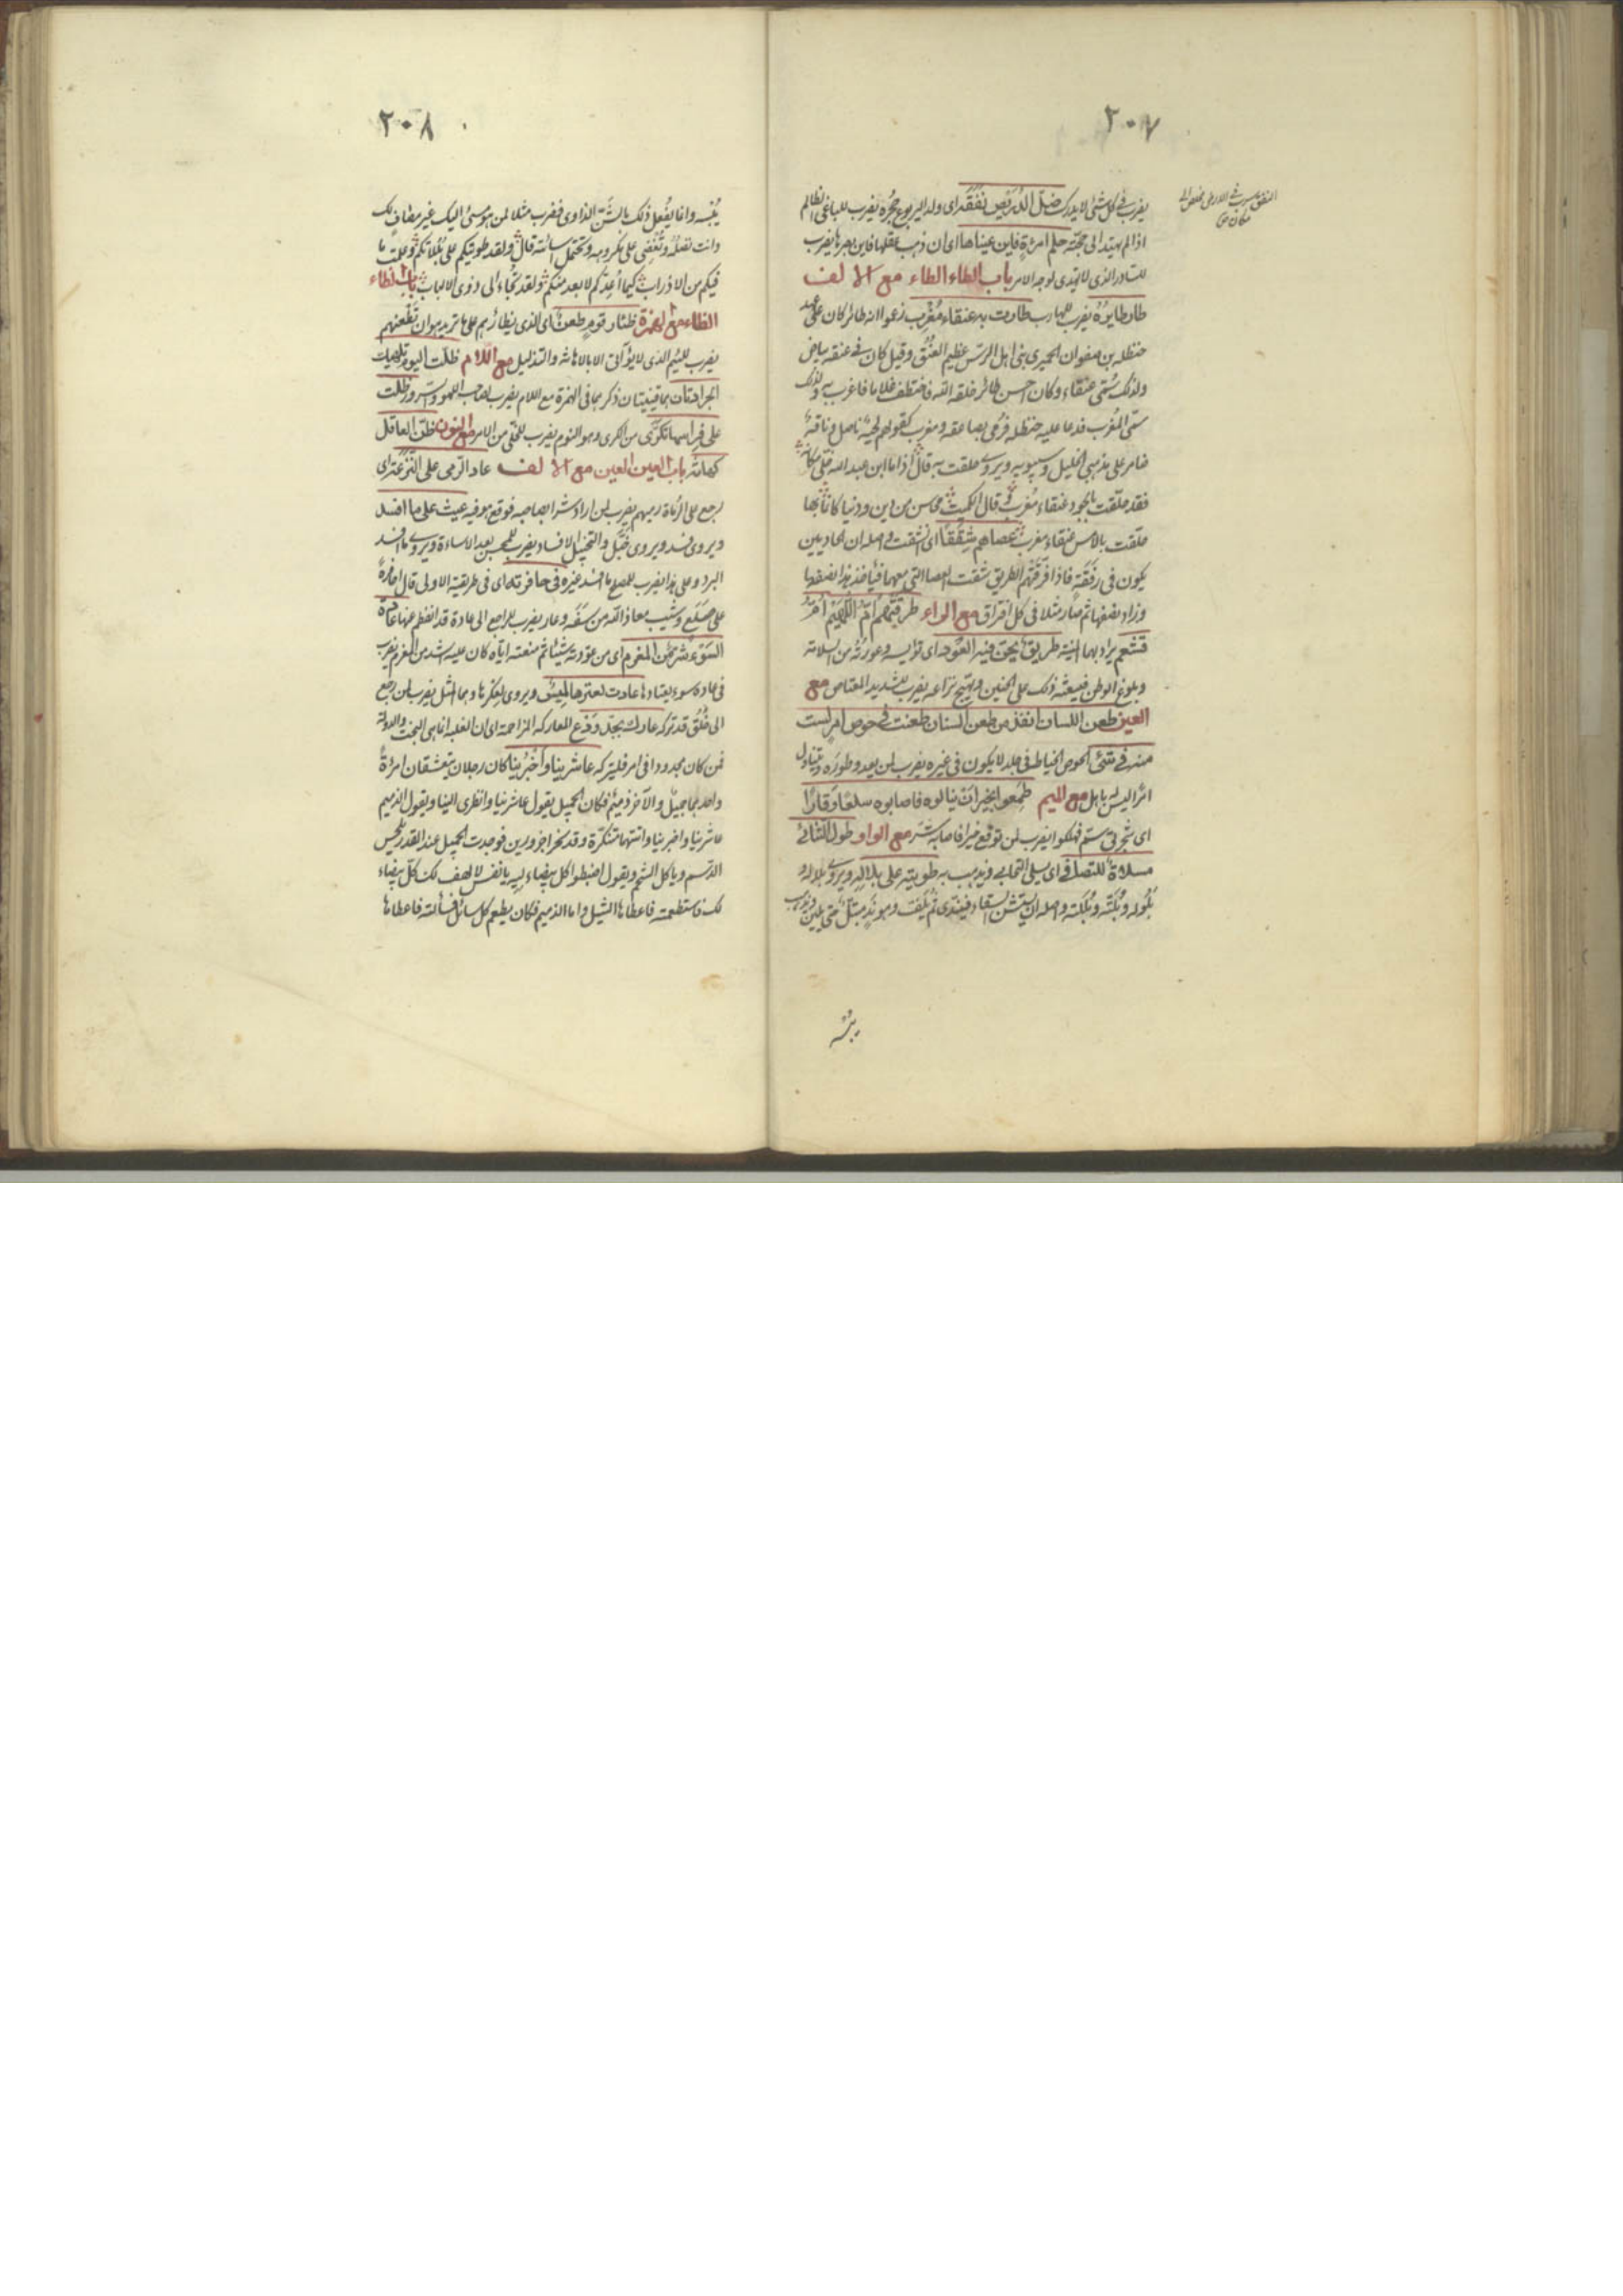 ٢٠٧
يضرب فى كل شئ لا يدرك ضلّ الدُرَيْص نَفَقَه اى ولد اليربوع جُحْره يضرب للباغى الظالم
اذا لم يهتد الى حجّته حلم امرءة فاين عيناها اى ان ذهب عقلها فاين بصرها يضرب
للنادر الذى لا يهتدى لوجه الامر باب الطاء الطاء مع الالف
طار طايرُهُ يضرب للهارب طارت به عنقاء مُغْرِب زعموا انه طائر كان على عهد
حنظله بن صفوان الحميرى بنى اهل الرسّ عظيم العُنُق وقيل كان فى عنقه بياض
ولذلك سُمّى عنقاء وكان احسن طائر خلقه الله فاختطف غلاما فاغرب به ولذلك
سمّى المُغرب فدعا عليه حنظله فرُمى بصاعقه ومغرب كقولهم لحية ناصل وناقة
ضامر على مذهبى الخليل وسيبويه ويروى حلقت به قال اذا ما ابن عبد الله خلّى مكانه
فقد حلّقت بالجود عنقاء مُغْرِب وقال الكميت محاسن من دين ودنيا كانما بها
حلقت بالامس عنقاء مغرب عصاهم شِقَقًا اى انشقت واصله ان الحاديين
يكون فى رفقة فاذا فرّقهم الطريق شقت العصا التى معهما فياخذ هذا نصفها
وزاد نصفها ثم صار مثلا فى كل افتراق مع الراء طرقتهم امّ اللُّهَيْم امّ
قشعم يراد بهما المنيّة طريق يحنّ فيه العَوْد اى توليسه وعورته من السلامة
وبلوغ الوطن فيبعثه ذلك على الحنين ويهيّج نزاعه يضرب للشديد المعتاص مع
العين طعن اللسان انفذ من طعن السنان طعنت فى حوص امر لست
منه فى شئ الحوص الخياطة فى جلد لا يكون فى غيره يضرب لمن يعدو طورَه ويتناول
امرًا ليس له باهل مع الميم طمِعوا بخير ان ينالوه فاصابوه سلعًا وقارًا
اى شجرتى سمّ فهلكوا يضرب لمن توقع خيرا فاصابه شرّ مع الواو طول التنائى
مسلاة للتصافى اى يسلى التحاب ويذهب به طويته على بلاله ويروى بلاله و
بُلُوله وبُلَّته وبُلَلته واصله ان يستشن السقاء فيندى ثم يلفّ وهو نَدٍ مبتلّ حتى يلين ويذهب
يبسه
٢٠٨
يُبْسه وانما يُفْعل ذلك بالشَّنّ الذاوى فضرب مثلا لمن هو مسئ اليك غير مصافٍ لك
وانت تصله وتُغْضى على مكروهه وتحتمل سائته قال ولقد طويتكم على بُلُلاتكم وعلمت ما
فيكم من الاذراب كيما اعدّكم لابعد منكم ولقد يُجاء الى ذوى الالباب باب الظاء
الظاء مع الهمزة ظئار قومٍ طعنٌ اى الذى يظائرهم على ما تريد هو ان تطعنهم
يضرب للئيم الذى لا يؤاتى الا بالاهانة والتذليل مع اللام ظلّت اليوم تلهيك
الجرادتان هما قينتان ذكرهما فى الهمزة مع اللام يضرب لصاحب اللهو وسرور ظلّت
على فراسها تكرّى من الكرى وهو النوم يضرب للمخلّى من الامر مع النون ظنّ العاقل
كهانة باب العين العين مع الالف عاد الرمى على النَّزَعَة اى
رجع على الرُماة رميهم يضرب لمن اراد شرا بصاحبه فوقع هو فيه عيث على ما افسد
ويروى فسد ويروى خَبَّل والتخبيل الافساد يضرب للمحسن بعد الاساءة ويروى ما افسد
البرد وعلى هذا يضرب للمصلح ما افسد غيره فى حافرته اى فى طريقته الاولى قال احافرةً
على صَلَعٍ وشَيب معاذ الله من سفهٍ وعار يضرب للراجع الى عادة قد انفطم عنها عادة
السَوْء شرّ من المغرم اى من عوّدته شيئا ثم منعته اياه كان عليه اشد من الغرم يضرب
فى عادة سوء يعتادها عادت لعترها لميس ويروى لعِكْرها وهما المثل يضرب لمن رجع
الى خُلُق قد تركه عارك بجَدّ او دَع المعاركه المزاحمة اى ان الغلبة انما هى البخت والدولة
فمن كان مجدودا فى امر فليتركه عاشرينا وأخبرينا كان رجلان يتعشقان امرءة
واحد بهما جميل والآخر ذميم فكان الجميل يقول عاشرينا وانظرى الينا ويقول الذميم
عاشرينا واخبرينا واتتهما متنكّرة وقد نحرا جزورين فوجدت الجميل عند القدر يلحس
الدسم وياكل الشحم ويقول اضبطوا كل بيضاء ليه يا نفس لا لهف لك كل بيضاء
لك فاستطعمته فاعطاها الثيل واما الذميم فكان يطعم كل سائل فسألته فاعطاها